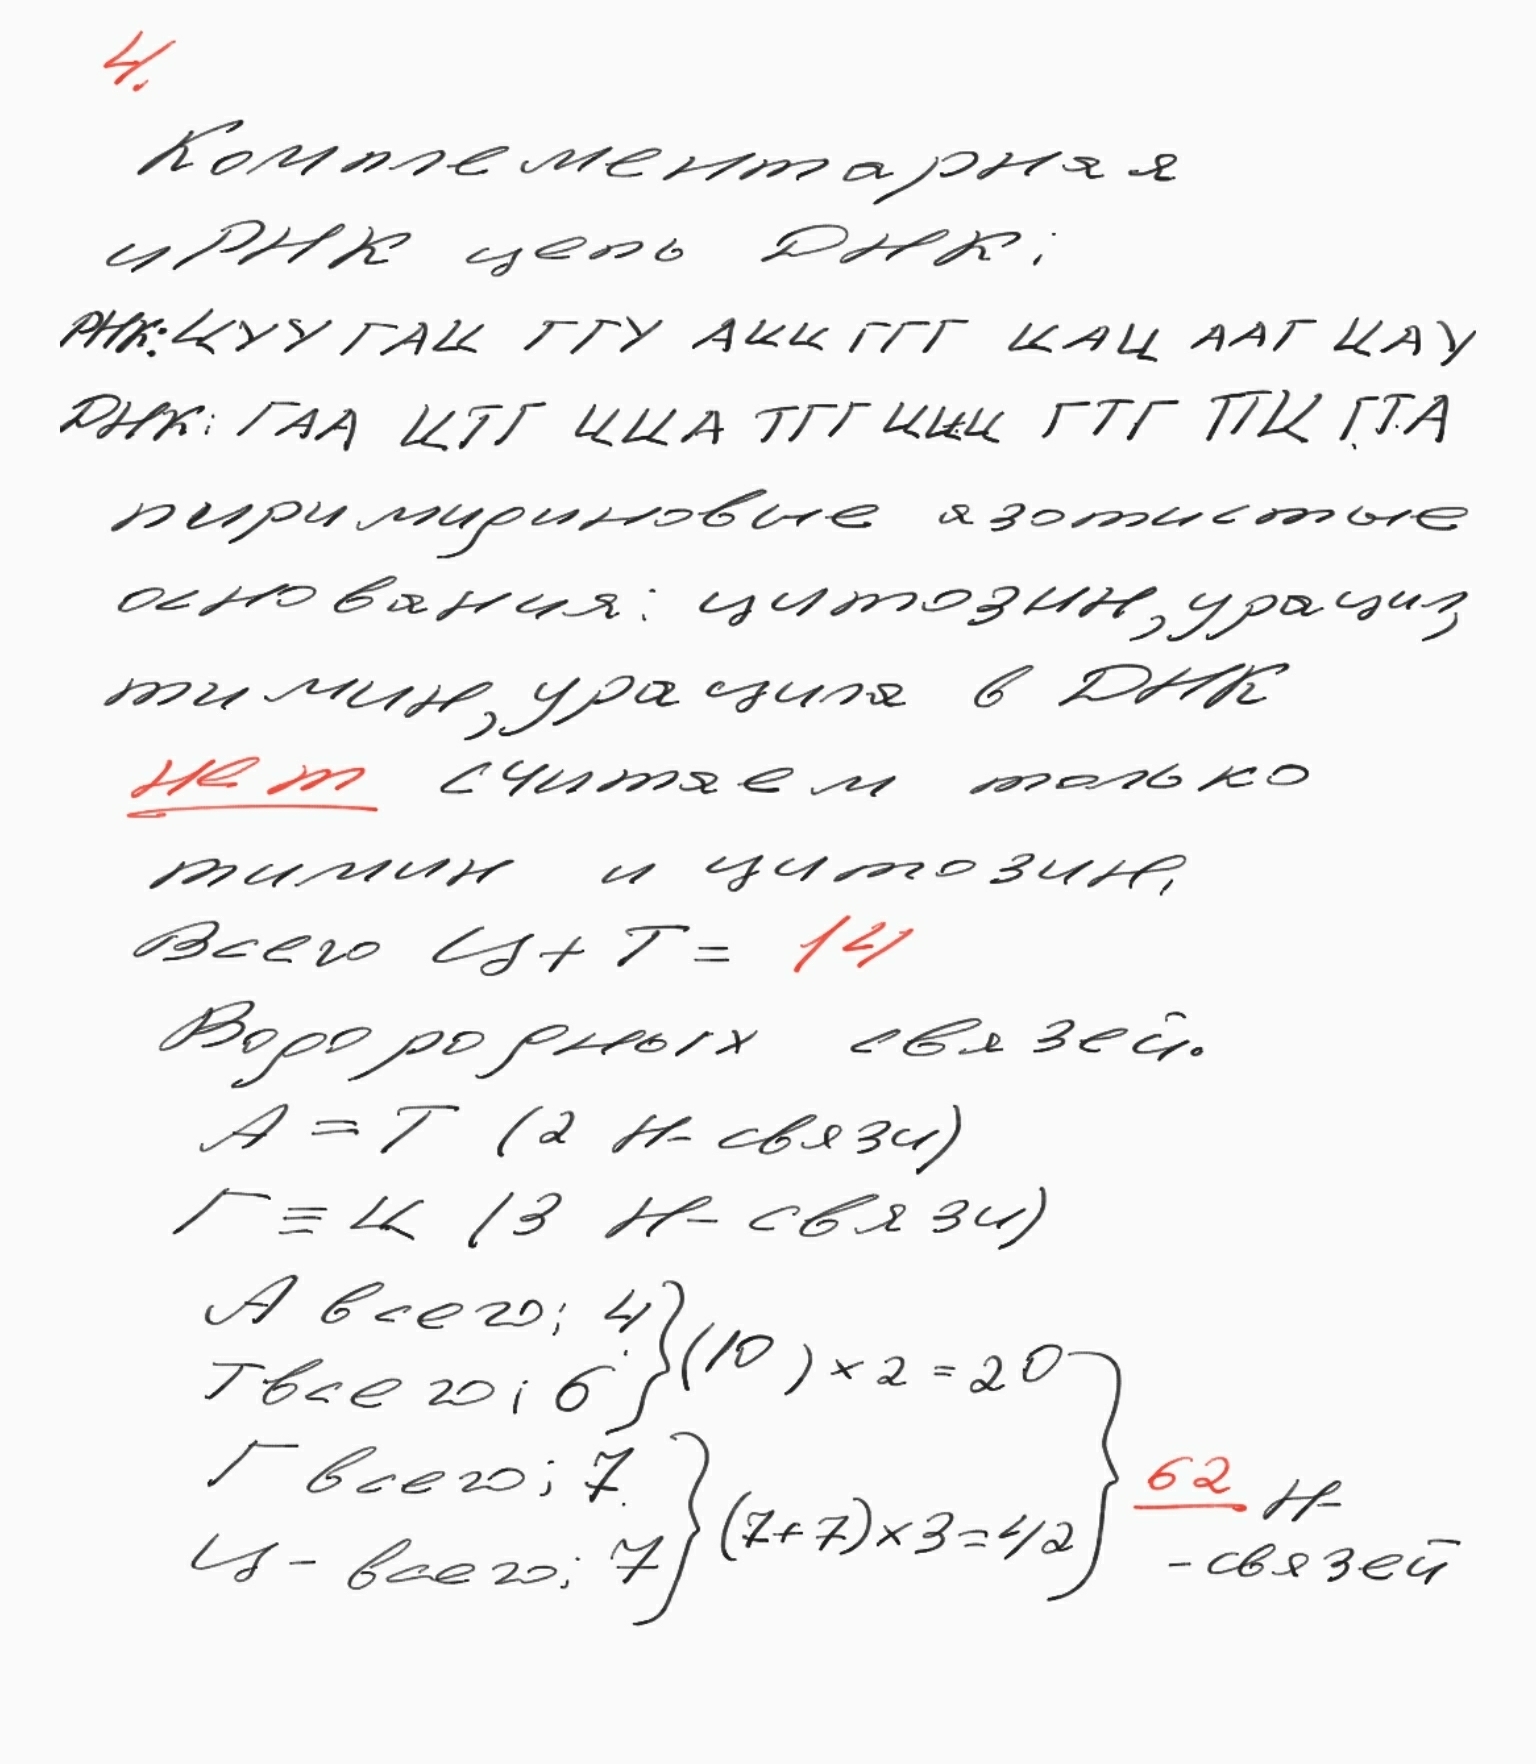 4.
Комплементарная
иРНК цепь ДНК:
РНК: ЦУУ ГАЦ ГГУ АЦЦ ГГГ ЦАЦ ААГ ЦАУ
ДНК: ГАА ЦТГ ЦЦА ТГГ ЦЦЦ ГТГ ТТЦ ГТА
пиримидиновые азотистые
основания: цитозин, урацил,
тимин, урацила в ДНК
нет считаем только
тимин и цитозин,
Всего Ц+Т= 14
Водородных связей.
А = Т (2 Н-связи)
Г ≡ Ц (3 Н-связи)
А всего; 4
Т всего; 6 (10) × 2 = 20
Г всего; 7
Ц - всего; 7 (7+7)×3=42
62 Н-
-связей